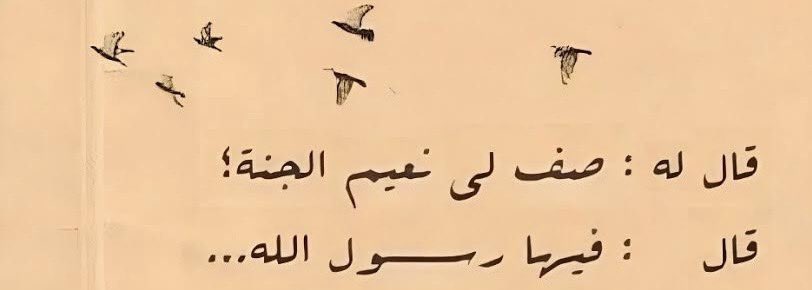 قال له : صف لي نعيم الجنة؛
قال : فيها رسول الله...